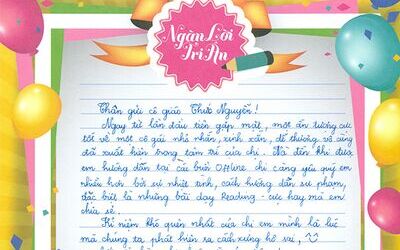 Ngàn Lời
Tri Ân
Thân gửi cô giáo Thức Nguyễn!
Ngay từ lần đầu tiên gặp mặt, một ấn tượng cực
tốt về một cô gái nhỏ nhắn, xinh xắn, dễ thương vô cùng
đã xuất hiện trong tâm trí của chị. Và đến khi được
em hướng dẫn tại các buổi Offline chị càng yêu quý em
nhiều hơn bởi sự nhiệt tình, cách hướng dẫn sư phạm,
đặc biệt là những bài dạy Reading - cực hay mà em
chia sẻ.
Kỉ niệm khó quên nhất của chị em mình là lúc
mà chúng ta phát hiện ra cách xưng hô sai, ^^